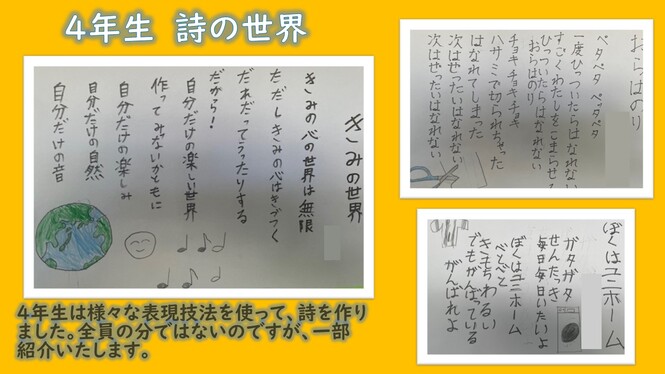 4年生 詩の世界
きみの世界
きみの心の世界は無限
ただしきみの心はきづつく
だれだってうったりする
だから！
自分だけの楽しい世界
作ってみないかともに
自分だけの楽しみ
自分だけの自然
自分だけの音
おらはのり
ペタペタ ペッタペタ
一度ひっついたらはなれない
すごくわたしをこまらせる
ひっついたらはなれない
おらはのり
チョキチョキチョキ
ハサミで切られちゃった
はなれてしまった
次はぜったいはなれない
次はぜったいはなれない
ぼくはユニホーム
ガタガタ
せんたっき
毎日毎日いたいよ
ぼくはユニホーム
べとべと
きもちわるい
でもがんばっている
がんばれよ
4年生は様々な表現技法を使って、詩を作り
ました。全員の分ではないのですが、一部
紹介いたします。